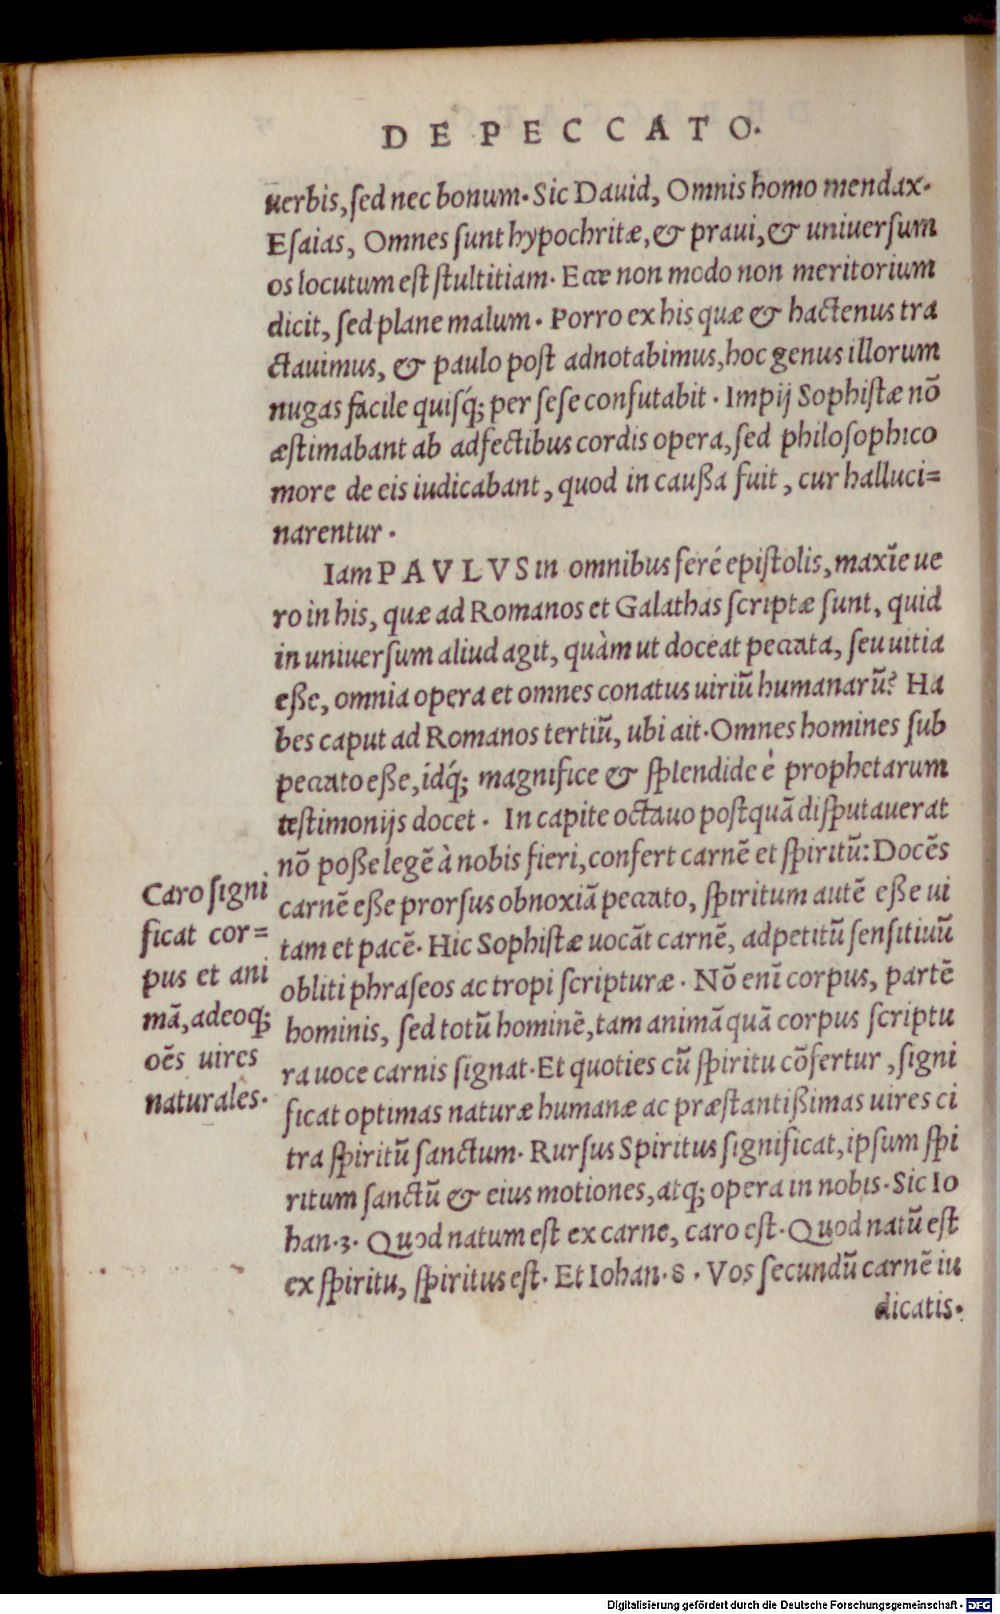 DE PECCATO.
uerbis, sed nec bonum. Sic Dauid, Omnis homo mendax.
Esaias, Omnes sunt hypochritæ, & praui, & uniuersum
os locutum est stultitiam. Ecce non modo non meritorium
dicit, sed plane malum. Porro ex his quæ & hactenus tra
ctauimus, & paulo post adnotabimus, hoc genus illorum
nugas facile quisq́; per sese confutabit. Impij Sophistæ nõ
æstimabant ab adfectibus cordis opera, sed philosophico
more de eis iudicabant, quod in caußa fuit, cur halluci=
narentur.
Iam PAVLVS in omnibus feré epistolis, maxĩe ue
ro in his, quæ ad Romanos et Galathas scriptæ sunt, quid
in uniuersum aliud agit, quàm ut doceat peccata, seu uitia
eße, omnia opera et omnes conatus uiriũ humanarũ? Ha
bes caput ad Romanos tertiũ, ubi ait. Omnes homines sub
peccato eße, idq́; magnifice & splendide è prophetarum
testimonijs docet. In capite octauo postquã disputauerat
nõ poße legẽ à nobis fieri, confert carnẽ et spiritũ: Docẽs
carnẽ eße prorsus obnoxiã peccato, spiritum autẽ eße ui
tam et pacẽ. Hic Sophistæ uocãt carnẽ, adpetitũ sensitiuũ
obliti phraseos ac tropi scripturæ. Nõ enĩ corpus, partẽ
hominis, sed totũ hominẽ, tam animã quã corpus scriptu
ra uoce carnis signat. Et quoties cũ spiritu cõfertur, signi
ficat optimas naturæ humanæ ac præstantißimas uires ci
tra spiritũ sanctum. Rursus Spiritus significat, ipsum spi
ritum sanctũ & eius motiones, atq; opera in nobis. Sic Io
han. 3. Quod natum est ex carne, caro est. Quod natũ est
ex spiritu, spiritus est. Et Iohan. 8. Vos secundũ carnẽ iu
dicatis.
Caro signi
ficat cor=
pus et ani
mã, adeoq;
oẽs uires
naturales.
Digitalisierung gefördert durch die Deutsche Forschungsgemeinschaft - DFG